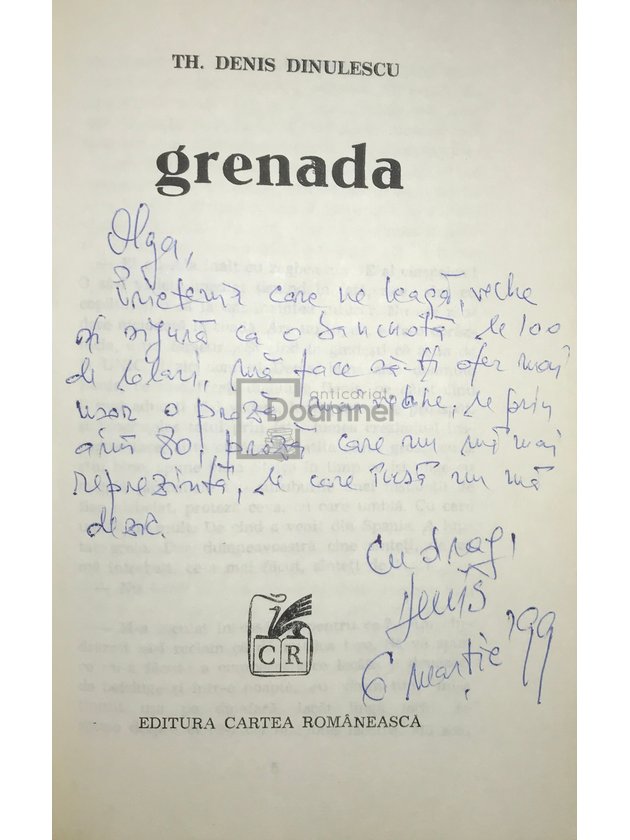 TH. DENIS DINULESCU
grenada
Olga,
Prietenia care ne leagă, veche
și sigură ca o bancnotă de 100
de dolari, mă face să-ți ofer mai
ușor o proză de prin
anii 80, proză care nu mă mai
reprezintă, de care însă nu mă
dezic.
Cu drag,
Denis
6 martie '99
anticariat
Doamnei
C R
EDITURA CARTEA ROMÂNEASCĂ